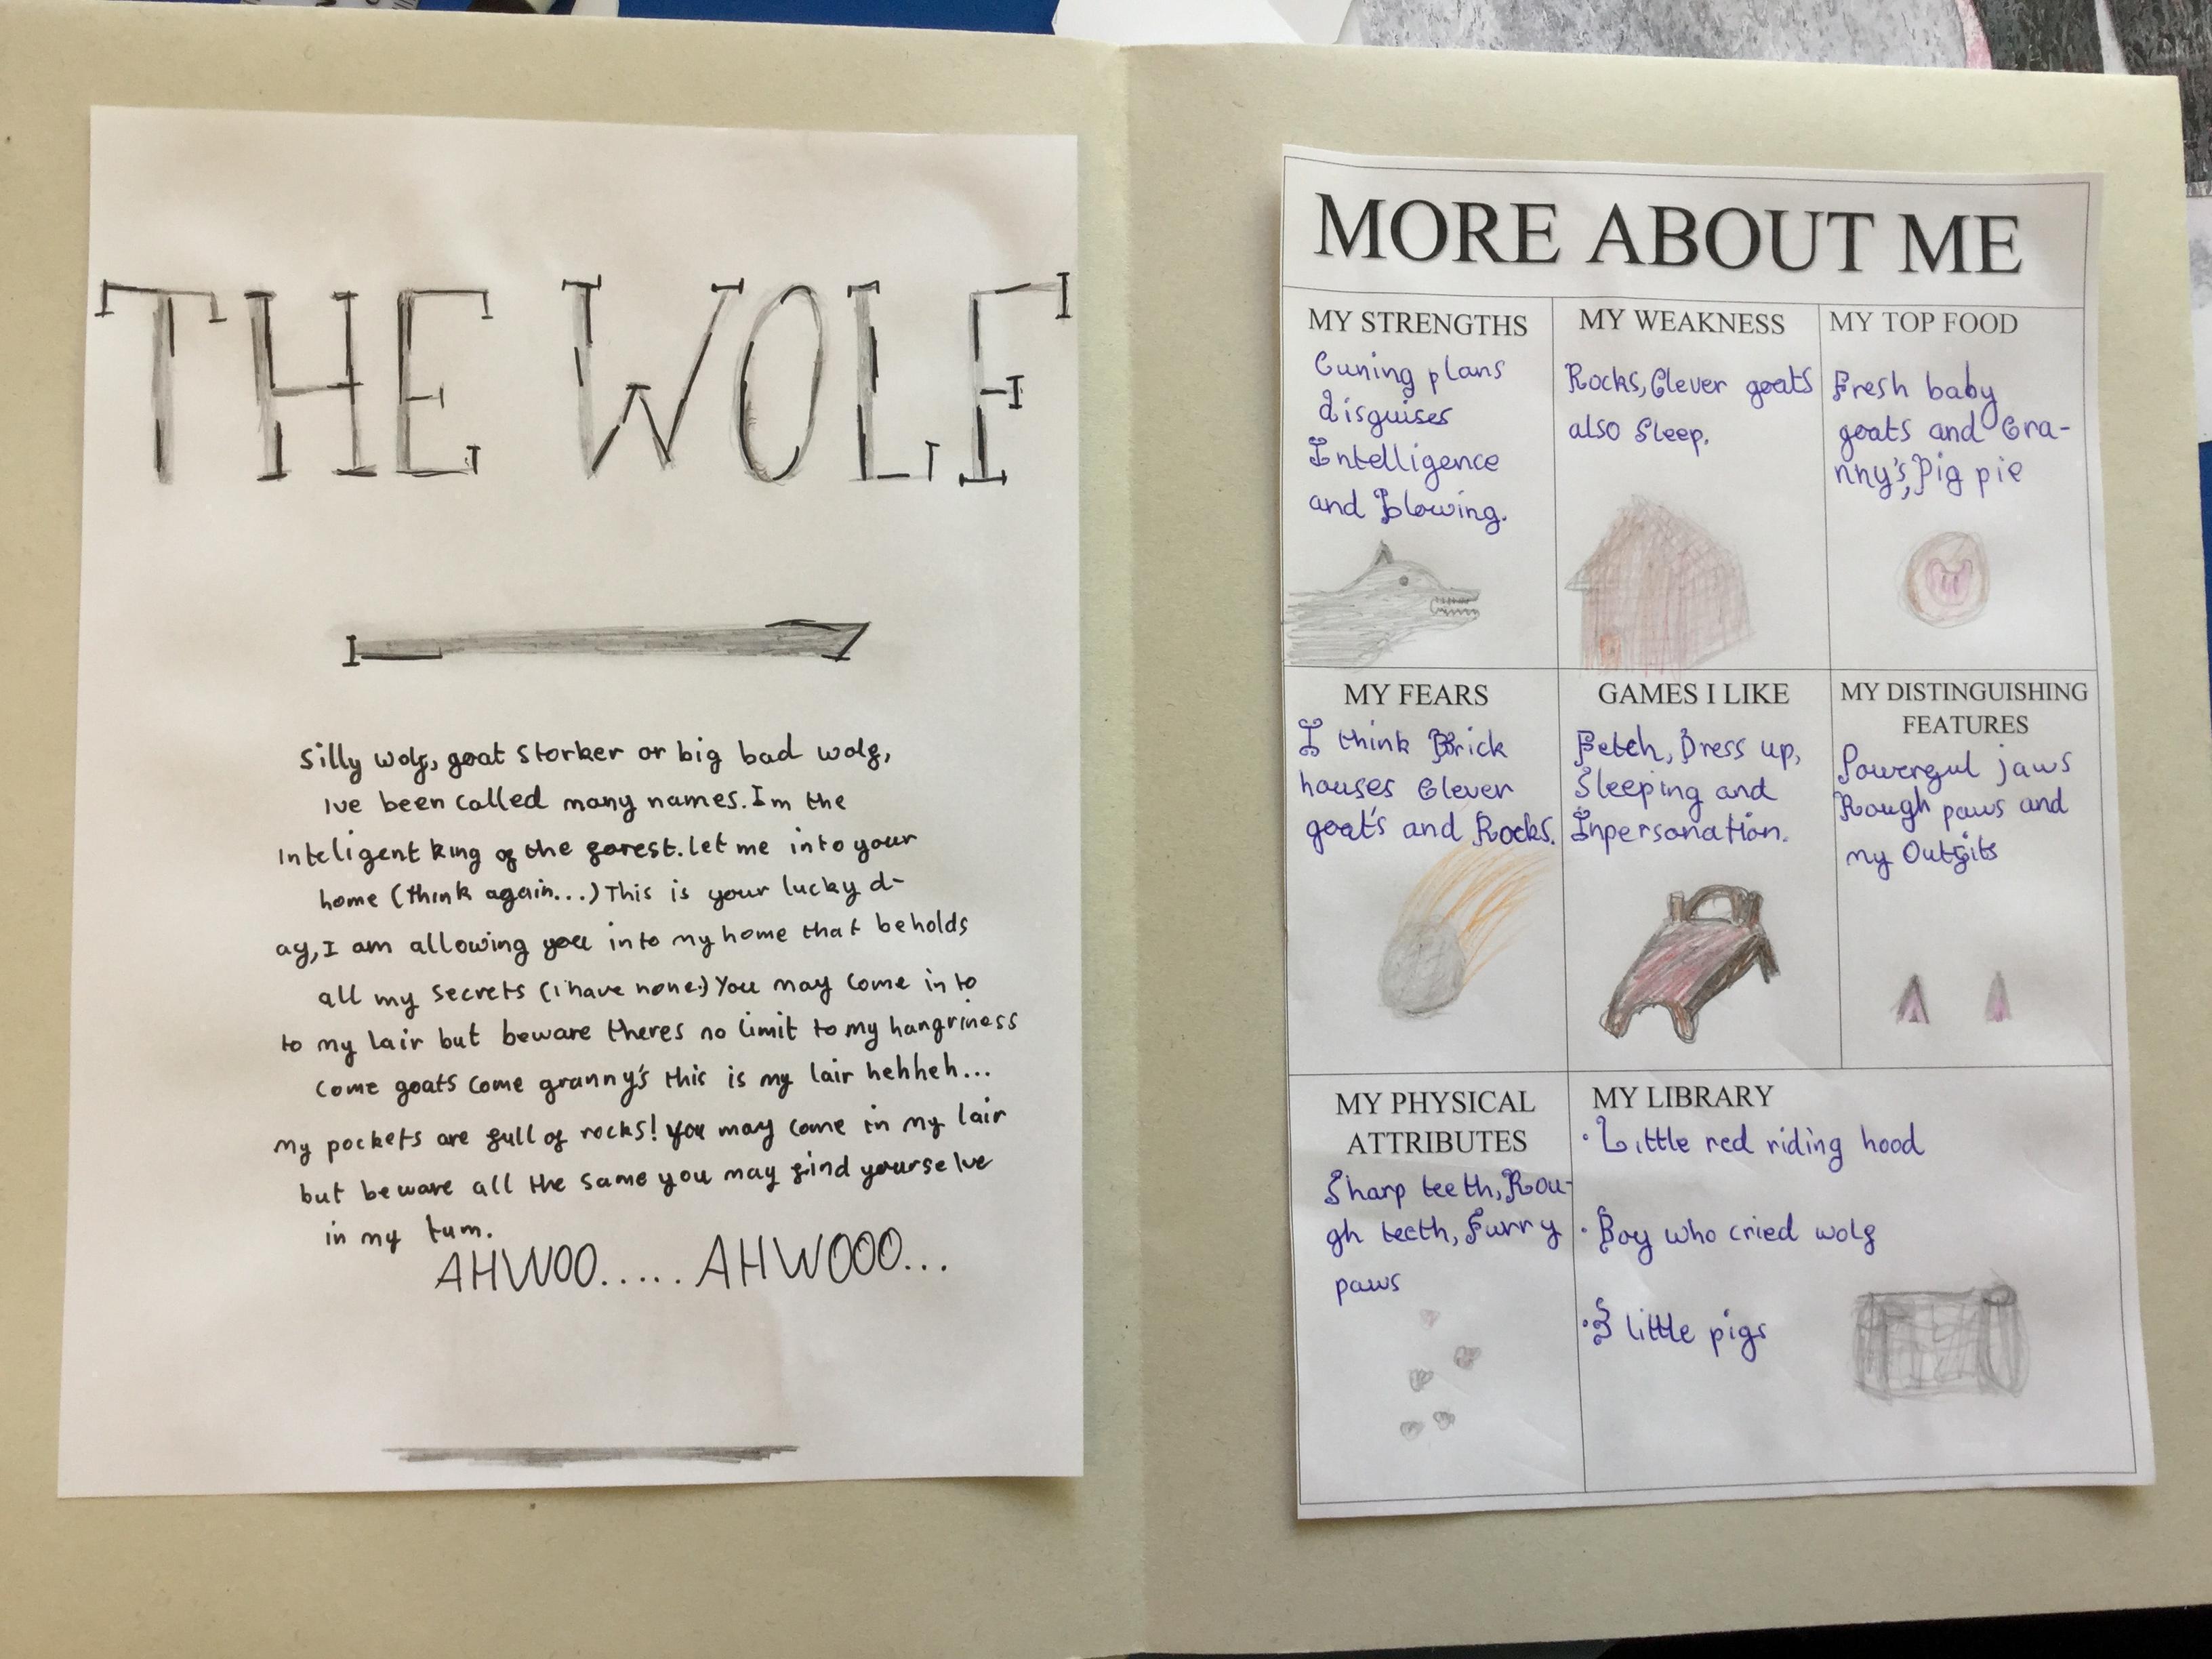 THE WOLF
Silly wolf, goat storker or big bad wolf,
Ive been called many names. Im the
Inteligent king of the forest. let me into your
home (think again...) This is your lucky d-
ay, I am allowing you into my home that beholds
all my secrets (i have none.) You may come in to
to my lair but beware theres no limit to my hangriness
come goats come granny's this is my lair hehheh...
my pockets are full of rocks! you may come in my lair
but beware all the same you may find yourselve
in my tum.
AHWOO..... AHWOOO...
MORE ABOUT ME
MY STRENGTHS
Cuning plans
disguises
Intelligence
and Blowing.
MY WEAKNESS
Rocks, Clever goats
also Sleep.
MY TOP FOOD
Fresh baby
goats and Gra-
nny's, Pig pie
MY FEARS
I think Brick
houses Clever
goat's and Rocks.
GAMES I LIKE
Fetch, Dress up,
Sleeping and
Inpersonation.
MY DISTINGUISHING
FEATURES
Powerful jaws
Rough paws and
my Outfits
MY PHYSICAL
ATTRIBUTES
Sharp teeth, Rou-
gh teeth, Furry
paws
MY LIBRARY
· Little red riding hood
· Boy who cried wolf
· 3 little pigs